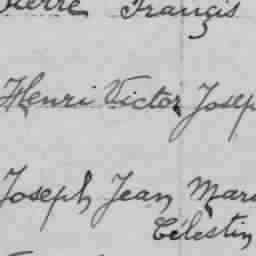 Pierre Francis
Henri Victor Josep
Joseph Jean Mari
Célestin